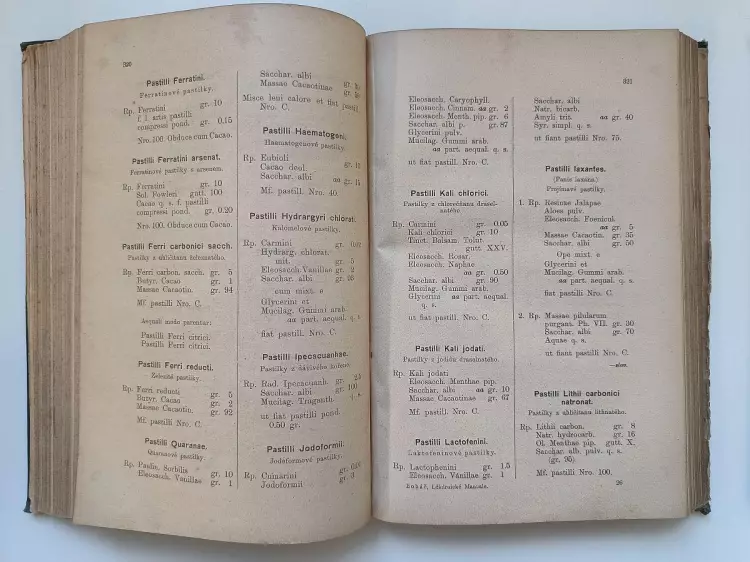 320
Pastilli Ferratini.
Ferratinové pastilky.
Rp. Ferratini gr. 10
f. l. artis pastilli
compressi pond. gr. 0.15
Nro. 100. Obduce cum Cacao.
Pastilli Ferratini arsenat.
Ferratinové pastilky s arsenem.
Rp. Ferratini gr. 10
Sol. Fowleri gutt. 100
Cacao q. s. f. pastilli
compressi pond. gr. 0.20
Nro. 100. Obduce cum Cacao.
Pastilli Ferri carbonici sacch.
Pastilky z uhličitanu železnatého.
Rp. Ferri carbon. sacch. gr. 5
Butyr. Cacao gr. 1
Massae Cacaotin. gr. 94
Mf. pastilli Nro. C.
Aequali modo parentur:
Pastilli Ferri citrici.
Pastilli Ferri citrici.
Pastilli Ferri reducti.
Železité pastilky.
Rp. Ferri reducti gr. 5
Butyr. Cacao gr. 2
Massae Cacaotin. gr. 92
Mf. pastilli Nro. C.
Pastilli Quaranae.
Quaranové pastilky.
Rp. Pastae Sorbilis gr. 10
Eleosacch. Vanillae gr. 1
Sacchar. albi gr.
Massae Cacaotinae gr.
Misce leni calore et fiat pastill.
Nro. C.
Pastilli Haematogeni.
Haematogenové pastilky.
Rp. Eubioli gr.
Cacao deol.
Sacchar. albi aa gr.
Mf. pastill. Nro. 40.
Pastilli Hydrargyri chlorat.
Kalomelové pastilky.
Rp. Carmini gr.
Hydrarg. chlorat.
mit. gr. 5
Eleosacch. Vanillae gr. 2
Sacchar. albi gr.
cum mixt. e
Glycerini et
Mucilag. Gummi arab.
aa part. aequal. q. s.
fiat pastilli. Nro. C.
Pastilli Ipecacuanhae.
Pastilky z dávivého kořene.
Rp. Rad. Ipecacuanh. gr.
Sacchar. albi gr. 100
Mucilag. Traganth. q. s.
ut fiat pastilli pond.
0.50 gr.
Pastilli Jodoformii.
Jodoformové pastilky.
Rp. Cumarini gr.
Jodoformii gr.
321
Eleosacch. Caryophyll.
Eleosacch. Cinnam. aa gr. 2
Eleosacch. Menth. pip. gr. 6
Sacchar. albi p. gr. 87
Glycerini pulv.
Mucilag. Gummi arab.
aa part. aequal. q. s.
ut fiat pastilli Nro. C.
Pastilli Kali chlorici.
Pastilky z chlorečňanu drasel-
natého.
Rp. Carmini gr. 0.05
Kali chlorici gr. 10
Tinct. Balsam. Tolut.
gutt XXV.
Eleosacch. Rosar.
Eleosacch. Naphae
aa gr. 0.50
Sacchar. albi gr. 90
Mucilag. Gummi arab.
Glycerini aa part. aequal.
q. s.
ut fiat pastilli Nro. C.
Pastilli Kali jodati.
Pastilky z jodidu draselnatého.
Rp. Kali jodati
Eleosacch. Menthae pip.
Sacchar. albi aa gr. 10
Massae Cacaotinae gr. 67
Mf. pastilli Nro. C.
Pastilli Lactofenini.
Laktofeninové pastilky.
Rp. Lactophenini gr. 1.5
Eleosacch. Vanillae gr. 1
Bohář, Lékárnické Manuale.
Sacchar. albi
Natr. bicarb.
Amyli trit. aa gr. 40
Syr. simpl. q. s.
ut fiant pastilli Nro. 75.
Pastilli laxantes.
(Panis laxans.)
Projímavé pastilky.
1. Rp. Resinae Jalapae
Aloes pulv.
Eleosacch. Foenicul.
aa gr. 5
Massae Cacaotin. gr. 35
Sacchar. albi gr. 50
Ope mixt. e
Glycerini et
Mucilag. Gummi arab.
aa part. aequal. q. s.
ut fiat pastilli Nro. C.
2. Rp. Massae pilularum
purgant. Ph. VII. gr. 30
Sacchar. albi gr. 70
Aquae q. s.
ut fiant pastilli Nro. C.
Pastilli Lithii carbonici
natronat.
Pastilky z uhličitanu lithnatého.
Rp. Lithii carbon. gr. 8
Natr. hydrocarb. gr. 16
Ol. Menthae pip. gutt. X.
Sacchar. alb. pulv. q. s.
(gr. 95).
Mf. pastilli Nro. 100.